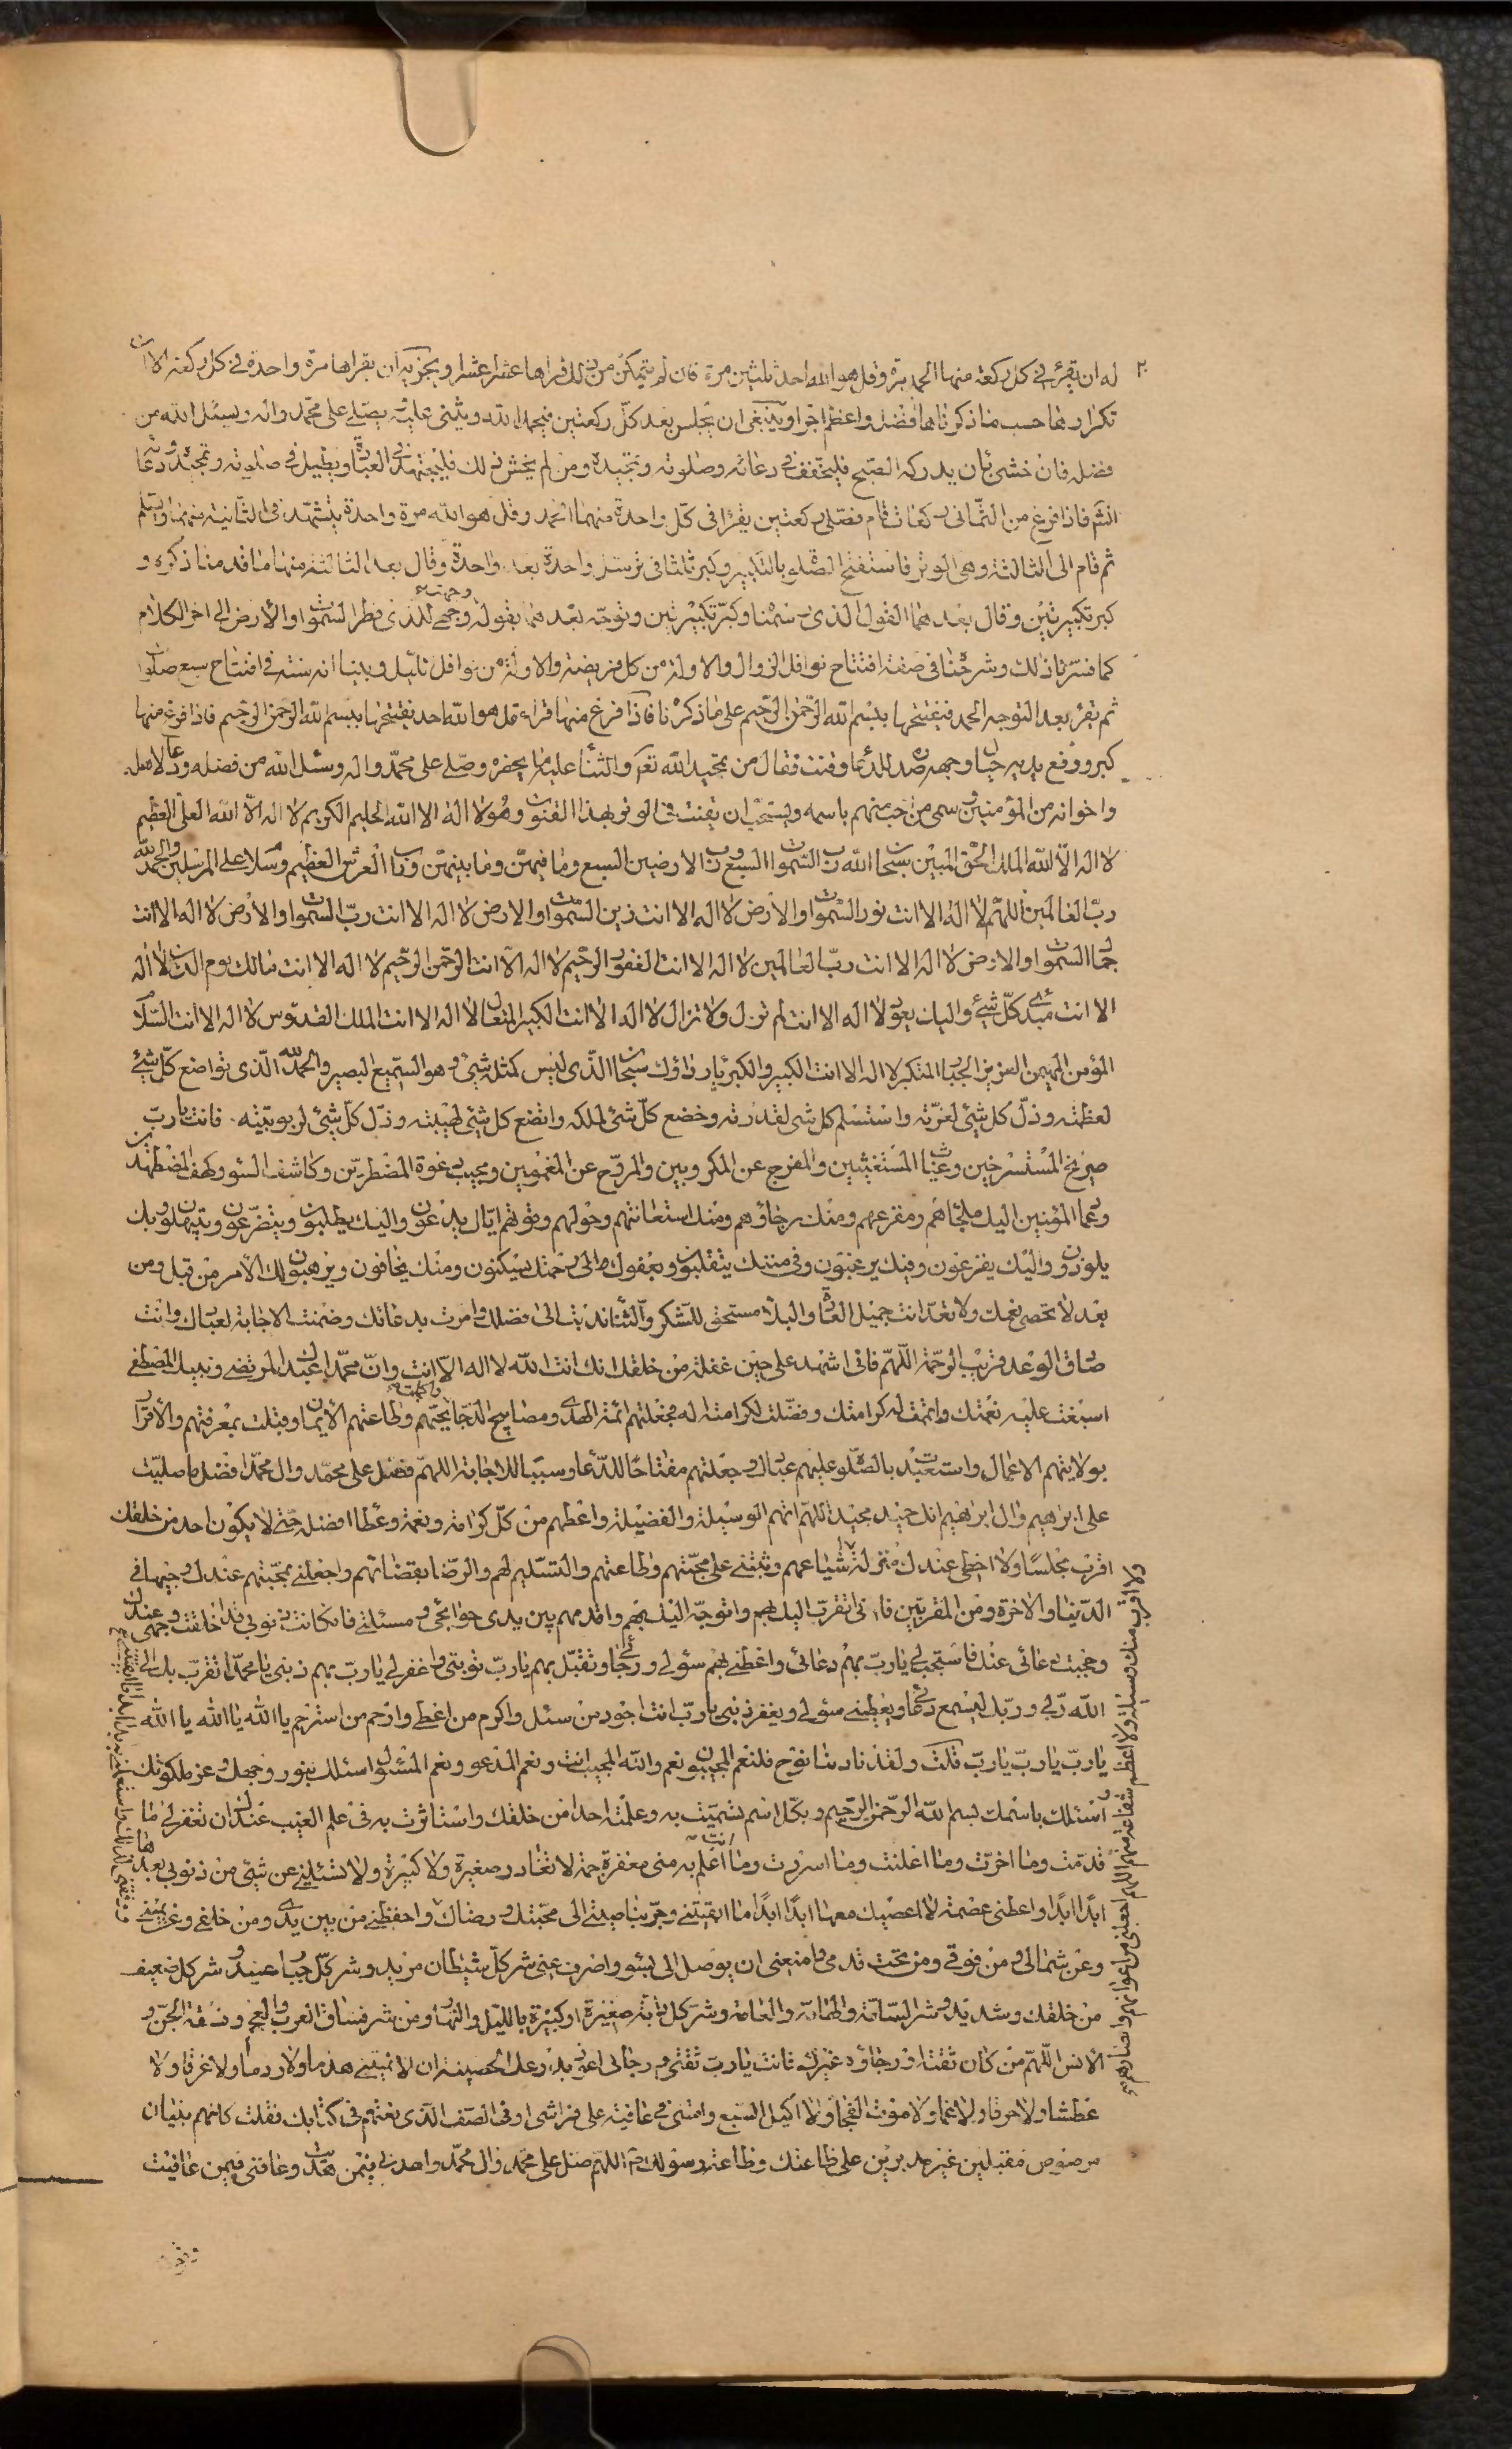 له ان يقرء في كل ركعة منها الحمد مرة وقل هو الله احد ثلثين مرة فان لم يتمكن من ذلك قراها عشرا عشرا ويجزيه ان يقراها مرة واحدة في كل ركعة الا ان
تكرارهما حسب ما ذكرناه افضل واعظم اجرا وينبغي ان يجلس بعد كل ركعتين فيحمد الله ويثني عليه ويصلي على محمد واله ويسئل الله من
فضله فان خشي ان يدركه الصبح فليخفف في دعائه وصلوته وتمجيده ومن لم يخش ذلك فليجتهد في العبادة ويطيل في صلوته وتمجيده ودعائه
انشم فاذا فرغ من الثماني ركعات قام فصلى ركعتين يقرا في كل واحدة منهما الحمد وقل هو الله مرة واحدة يتشهد في الثانية منهما ويسلم
ثم قام الى الثالثة وهي الوتر فاستفتح الصلوة بالتكبير وكبر ثلثا في ترسل واحدة بعد واحدة وقال بعد الثالثة منها ما قدمنا ذكره و
كبر تكبيرتين وقال بعدهما القول الذي رسمنا وكبر تكبيرتين وتوجه بعدهما بقوله وجهت وجهي للذي فطر السموات والارض الى اخر الكلام
كما فسرنا ذلك وشرحنا في صفة افتتاح نوافل الزوال والاولة من كل فريضة والاولة من نوافل الليل وبينا انه سنة في افتتاح سبع صلوات
ثم يقرء بعد التوجه الحمد فيفتتحها ببسم الله الرحمن الرحيم على ما ذكرنا فاذا فرغ منها قراء قل هو الله احد يفتتحها ببسم الله الرحمن الرحيم فاذا فرغ منها
كبر ورفع يديه حيال وجهه للدعاء وقنت فقال من تمجيد الله تعالى والثناء عليه ما يحضره وصلى على محمد واله وسئل الله من فضله ودعا لاهله
واخوانه من المؤمنين وسمى من احب منهم باسمه ويستحب ان يقنت في الوتر بهذا القنوت وهو لا اله الا الله الحليم الكريم لا اله الا الله العلي العظيم
لا اله الا الله الملك الحق المبين سبحان الله رب السموات السبع ورب الارضين السبع وما فيهن وما بينهن ورب العرش العظيم وسلام على المرسلين والحمد لله
رب العالمين اللهم لا اله الا انت نور السموات والارض لا اله الا انت زين السموات والارض لا اله الا انت رب السموات والارض لا اله الا انت
جمال السموات والارض لا اله الا انت رب العالمين لا اله الا انت الغفور الرحيم لا اله الا انت الرحمن الرحيم لا اله الا انت مالك يوم الدين لا اله
الا انت مبدئ كل شيء واليك يعود لا اله الا انت لم تزل ولا تزال لا اله الا انت الكبير المتعال لا اله الا انت الملك القدوس لا اله الا انت السلام
المؤمن المهيمن العزيز الجبار المتكبر لا اله الا انت الكبير والكبرياء رداؤك سبحان الذي ليس كمثله شيء وهو السميع البصير والحمد لله الذي تواضع كل شيء
لعظمته وذل كل شيء لعزته واستسلم كل شيء لقدرته وخضع كل شيء لملكه واتضع كل شيء لهيبته وذل كل شيء لربوبيته فانت يا رب
صريخ المستصرخين وغياث المستغيثين والمفرج عن المكروبين والمروح عن المغمومين ومجيب دعوة المضطرين وكاشف السوء وكهف المضطهدين
ودعا المؤمنين اليك ملجاهم ومفزعهم ومنك رجاؤهم ومنك استعانتهم وحولهم وقوتهم اياك يدعون واليك يطلبون ويتضرعون ويبتهلون وبك
يلوذون واليك يفزعون وفيك يرغبون وفي مننك يتقلبون وبعفوك الى رحمتك يسكنون ومنك يخافون ويرهبون لك الامر من قبل ومن
بعد لا تحصى نعمك ولا تعد انت جميل العادة والبلاء مستحق للشكر والثناء ندبت الى فضلك وامرت بدعائك وضمنت الاجابة لعبادك وانت
صادق الوعد قريب الرحمة اللهم فاني اشهد على حين غفلة من خلقك انك انت الله لا اله الا انت وان محمدا عبدك المرتضى ونبيك المصطفى
اسبغت عليه نعمتك واتممت له كرامتك وفضلت لكرامته اله فجعلتهم ائمة الهدى ومصابيح الدجى واكملت بحبهم وطاعتهم الايمان وقبلت بمعرفتهم والاقرار
بولايتهم الاعمال واستعبدت بالصلوة عليهم عبادك وجعلتهم مفتاحا للدعاء وسببا للاجابة اللهم فصل على محمد وال محمد افضل ما صليت
على ابرهيم وال ابرهيم انك حميد مجيد اللهم اتهم الوسيلة والفضيلة واعطهم من كل كرامة ونعمة وعطاء افضله حتى لا يكون احد من خلقك
اقرب مجلسا ولا احظى عندك منزلة شياعهم وثبتني على محبتهم وطاعتهم والتسليم لهم والرضا بقضائهم واجعلني بمحبتهم عندك وجيها في
الدنيا والاخرة ومن المقربين فاني اتقرب اليك بهم واتوجه اليك بهم واقدمهم بين يدي حوايجي ومسئلتي فان كانت ذنوبي قد اخلقت وجهي عندك
وحجبت دعائي عنك فاستجب لي يا رب بهم دعائي واعطني بهم سؤلي ورجائي وتقبل بهم يا رب توبتي واغفر لي يا رب بهم ذنبي يا محمد اتقرب بك الى
الله ربي وربك ليسمع دعائي ويعطيني سؤلي ويغفر ذنبي يا رب انت اجود من سئل واكرم من اعطى وارحم من استرحم يا الله يا الله يا الله
يا رب يا رب يا رب قلت ولقد نادينا نوح فلنعم المجيبون نعم والله المجيب انت ونعم المدعو ونعم المسئول اسئلك بنور وجهك وعز ملكوتك
و اسئلك باسمك بسم الله الرحمن الرحيم وبكل اسم سميت به وعلمته احدا من خلقك واستاثرت به في علم الغيب عندك ان تغفر لي ما
قدمت وما اخرت وما اعلنت وما اسررت وما انت اعلم به مني مغفرة جمة لا تغادر صغيرة ولا كبيرة ولا تسئلني عن شيء من ذنوبي بعدها
ابدا ابدا واعطني عصمة لا اعصيك معها ابدا ابدا ما ابقيتني وجر بناصيتي الى محبتك ورضاك واحفظني من بين يدي ومن خلفي وعن يميني
وعن شمالي ومن فوقي ومن تحت قدمي وامنعني ان يوصل الي بسوء واصرف عني شر كل شيطان مريد وشر كل جبار عنيد وشر كل ضعيف
من خلقك وشديد وشر السامة والهامة والعامة وشر كل دابة صغيرة او كبيرة بالليل والنهار ومن شر فساق العرب والعجم وفسقة الجن و
الانس اللهم من كان ثقته ورجاؤه غيرك فانت يا رب ثقتي ورجائي اعوذ بدرعك الحصينة ان لا تميتني هدما ولا ردما ولا غرقا ولا
عطشا ولا حرقا ولا غما ولا موت الفجاة ولا اكيل السبع وامتني في عافية على فراشي او في الصف الذي نعتهم في كتابك فقلت كانهم بنيان
مرصوص مقبلين غير مدبرين على طاعتك وطاعة رسولك اللهم صل على محمد وال محمد واهدني فيمن هديت وعافني فيمن عافيت
ولا اقرب منك وسيلة ولا اعظم شفاعة منهم اللهم اجعلني من اعوانهم وانصارهم